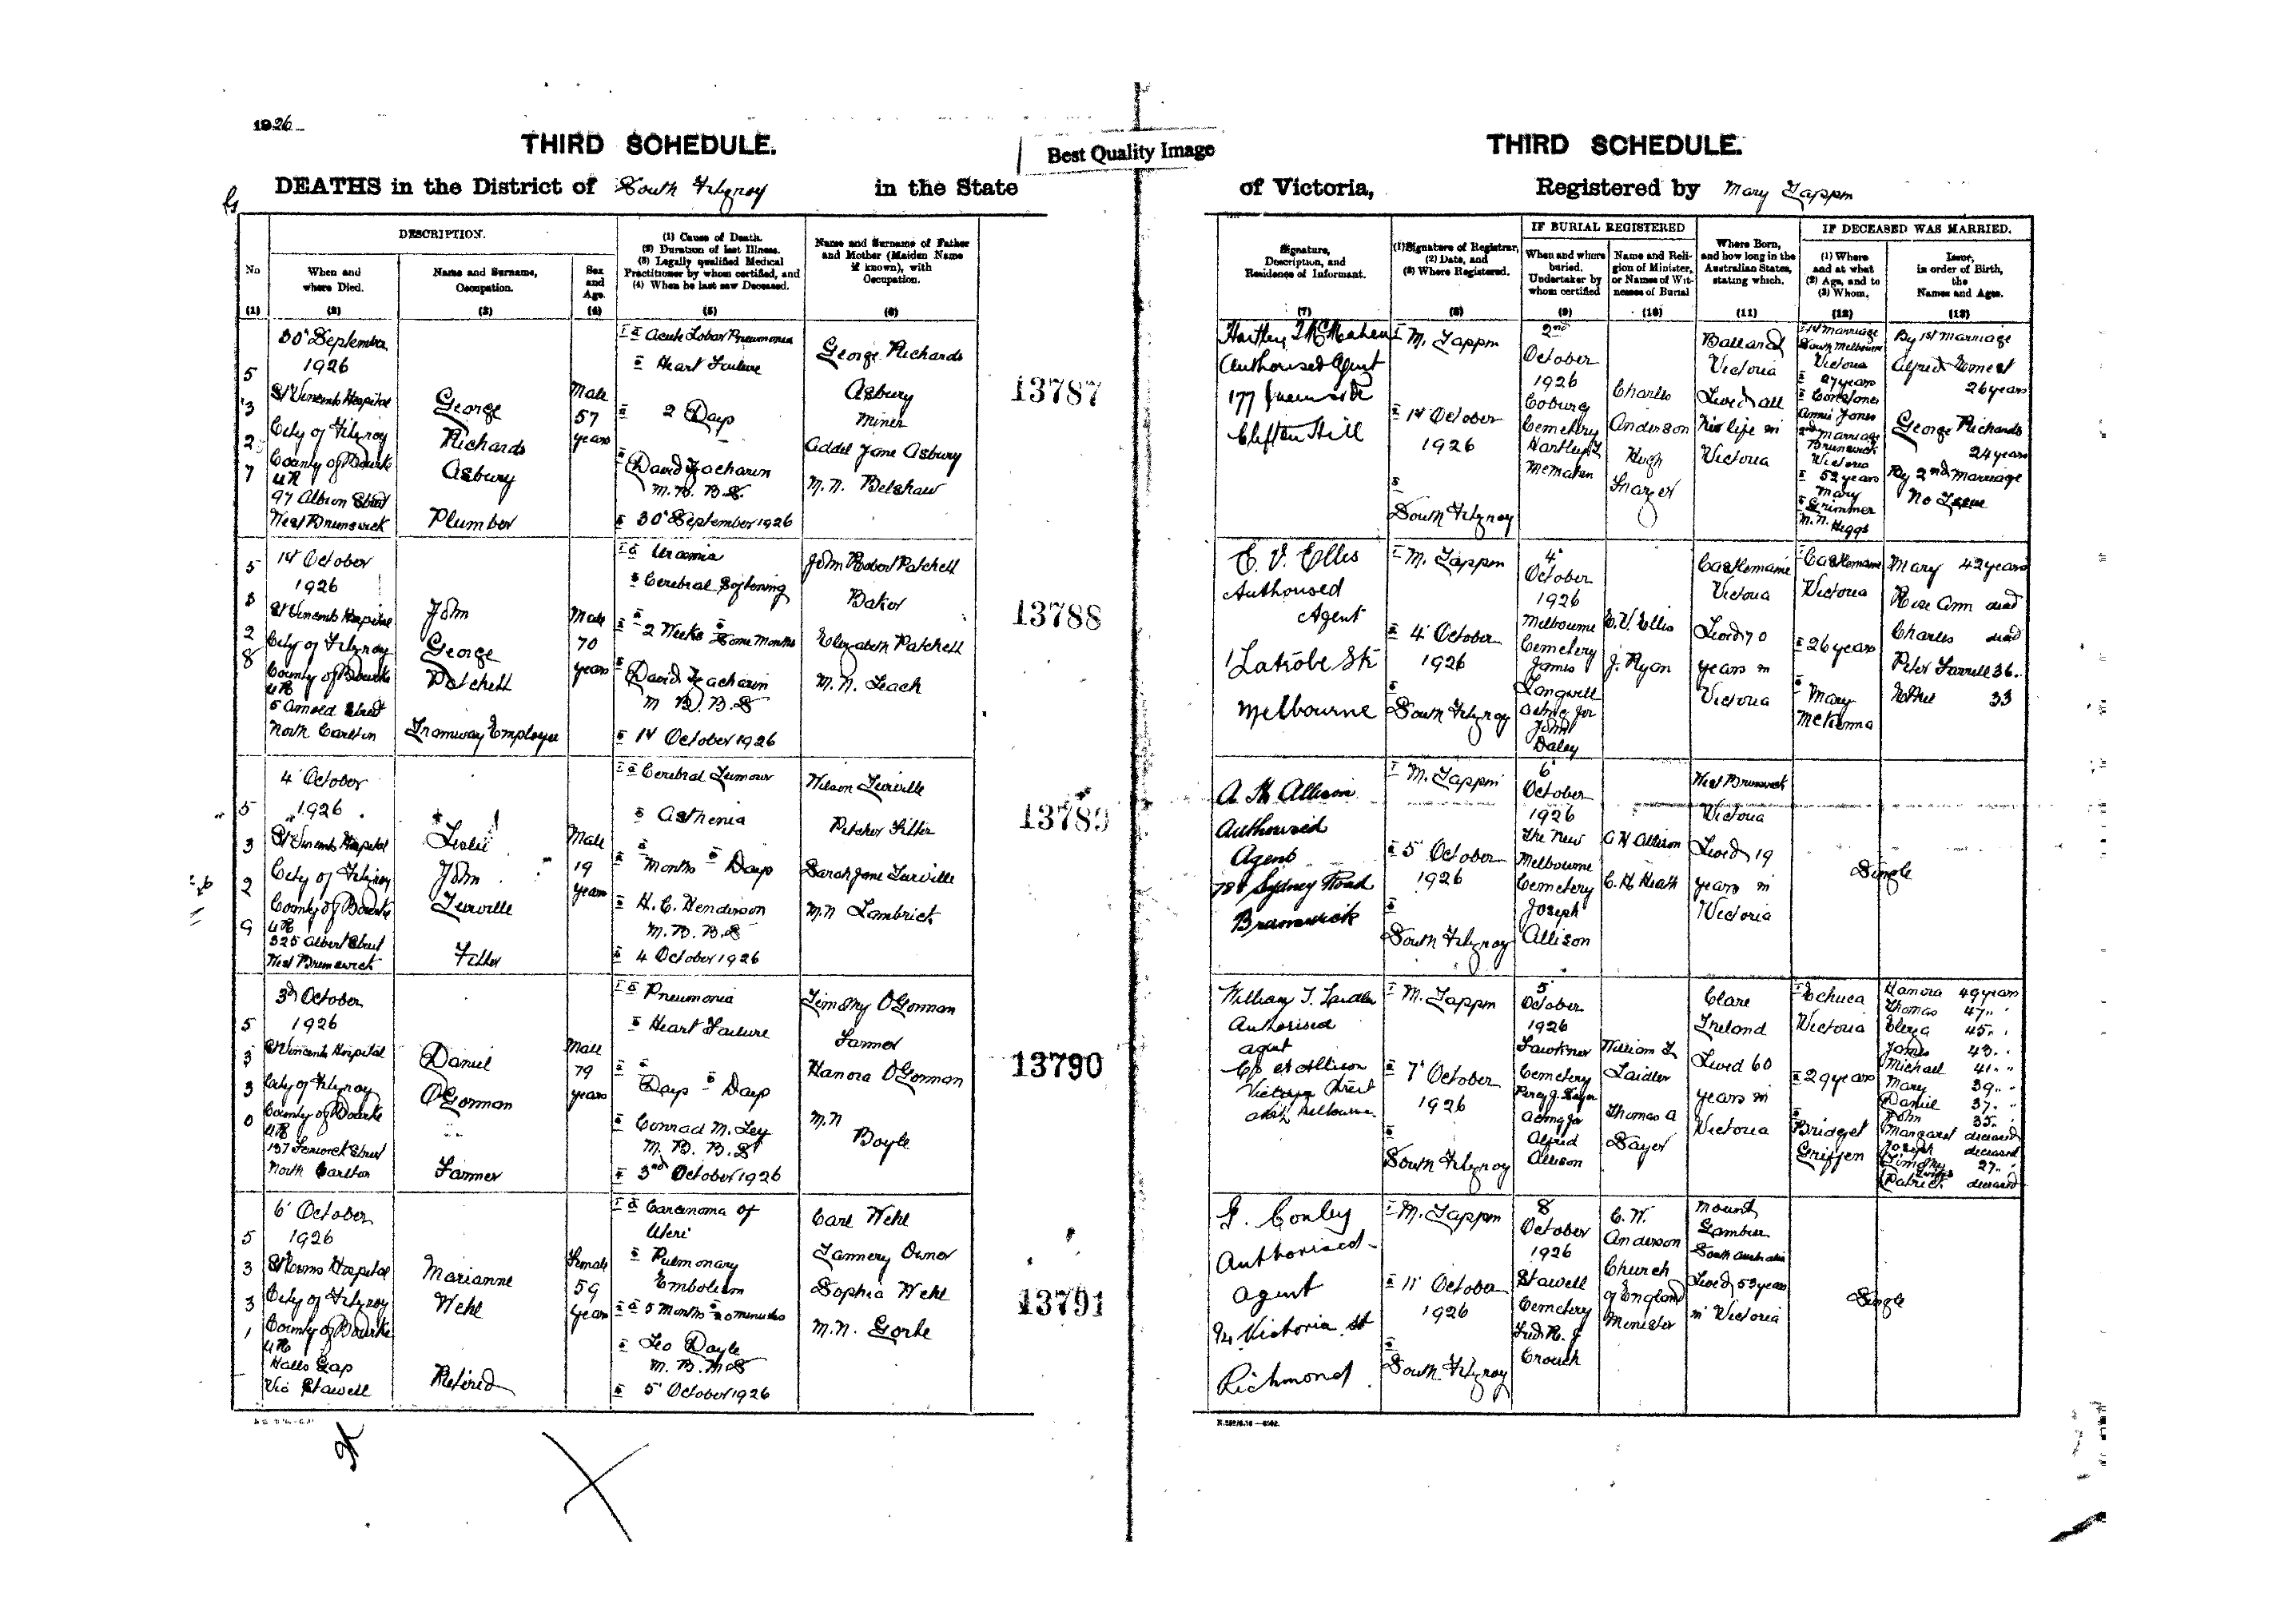 1926
THIRD SCHEDULE.
DEATHS in the District of South Fitzroy in the State
Best Quality Image
THIRD SCHEDULE.
of Victoria, Registered by Mary Tappin
No
(1)
DESCRIPTION.
When and
where Died.
(2)
Name and Surname,
Occupation.
(3)
Sex
and
Age.
(4)
(1) Cause of Death.
(2) Duration of last Illness.
(3) Legally qualified Medical
Practitioner by whom certified, and
(4) When he last saw Deceased.
(5)
Name and Surname of Father
and Mother (Maiden Name
if known), with
Occupation.
(6)
Signature,
Description, and
Residence of Informant.
(7)
(1) Signature of Registrar,
(2) Date, and
(3) Where Registered.
(8)
IF BURIAL REGISTERED
When and where
buried.
Undertaker by
whom certified
(9)
Name and Reli-
gion of Minister,
or Names of Wit-
nesses of Burial
(10)
Where Born,
and how long in the
Australian States,
stating which.
(11)
IF DECEASED WAS MARRIED.
(1) Where
and at what
(2) Age, and to
(3) Whom.
(12)
Issue,
in order of Birth,
the
Names and Ages.
(13)
5
3
2
7
30 September
1926
St Vincents Hospital
City of Fitzroy
County of Bourke
UR
97 Albion Street
West Brunswick
George
Richards
Asbury
Plumber
Male
57
years
1 a Acute Lobar Pneumonia
b Heart Failure
2 2 Days
3 David Zacharin
M.B. B.S.
4 30 September 1926
George Richards
Asbury
Miner
Addel Jane Asbury
M.N. Belshaw
13787
Authorised Agent
177
Clifton Hill
1 M. Tappin
2 1st October
1926
3
South Fitzroy
2nd
October
1926
Coburg
Cemetery
Charles
Anderson
Hugh
Ballarat
Victoria
Lived all
his life in
Victoria
1st Marriage
South Melbourne
Victoria
2 27 years
Annie Jones
2nd Marriage
Brunswick
Victoria
2 52 years
Mary
Grimmer
M.N. Higgs
By 1st Marriage
Alfred Ernest
26 years
George Richards
24 years
By 2nd Marriage
No Issue
5
3
2
8
1st October
1926
St Vincents Hospital
City of Fitzroy
County of Bourke
UR
5 Arnold Street
North Carlton
John
George
Patchett
Tramway Employee
Male
70
years
1 a Uraemia
b Cerebral Softening
2 a 2 Weeks b Some Months
3 David Zacharin
M.B. B.S
4 1st October 1926
John Robert Patchett
Baker
Elizabeth Patchett
M.N. Leach
13788
E. V. Ellis
Authorised
Agent
Latrobe St
Melbourne
1 M. Tappin
2 4 October
1926
3
South Fitzroy
4
October
1926
Melbourne
Cemetery
James
Langwill
acting for
John
Daley
E. V. Ellis
J. Ryan
Castlemaine
Victoria
Lived 70
years in
Victoria
1 Castlemaine
Victoria
2 26 years
3 Mary
McKenna
Mary 42 years
Rose Ann dead
Charles dead
Peter Farrell 36
33
5
3
2
9
4 October
1926
St Vincents Hospital
City of Fitzroy
County of Bourke
UR
325 Albert Street
West Brunswick
Leslie
John
Turville
Fitter
Male
19
years
1 a Cerebral Tumour
b Asthenia
2 a Months b Days
3 H. C. Henderson
M.B. B.S
4 4 October 1926
Wilson Turville
Sarah Jane Turville
M.N Lambrick
13789
A H Allison
Authorised
Agent
784 Sydney Road
Brunswick
1 M. Tappin
2 5 October
1926
3
South Fitzroy
6
October
1926
The New
Melbourne
Cemetery
Joseph
Allison
A H Allison
C. H. Heath
West Brunswick
Victoria
Lived 19
years in
Victoria
Single
5
3
3
0
3rd October
1926
St Vincents Hospital
City of Fitzroy
County of Bourke
UR
137 Fenwick Street
North Carlton
Daniel
O'Gorman
Farmer
Male
79
years
1 a Pneumonia
b Heart Failure
2 a Days b Days
3 Conrad M. Ley
M.B. B.S
4 3rd October 1926
Timothy O'Gorman
Farmer
Hanora O'Gorman
M.N
Boyle
13790
William T. Laidler
Authorised
agent
Victoria Street
1 M. Tappin
2 7 October
1926
3
South Fitzroy
5
October
1926
Fawkner
Cemetery
Acting for
Alfred
Allison
William T.
Laidler
Thomas A
Sayer
Clare
Ireland
Lived 60
years in
Victoria
1 Echuca
Victoria
2 29 years
3
Bridget
Griffen
Hanora 49 years
Thomas 47
45
James 43
Michael 41
Mary 39
Daniel 37
John 35
Margaret deceased
Joseph deceased
Timothy 27
Patrick deceased
5
3
3
1
6 October
1926
City of Fitzroy
County of Bourke
UR
Halls Gap
Via Stawell
Marianne
Wehl
Retired
Female
59
years
1 a Carcinoma of
Uteri
b Pulmonary
Embolism
2 a 5 Months b 20 minutes
3 Leo Doyle
M.B. M.S
4 5 October 1926
Carl Wehl
Tannery Owner
Sophia Wehl
M.N. Gorke
13791
Conley
Authorised
Agent
94 Victoria St
Richmond
1 M. Tappin
2 11 October
1926
3
South Fitzroy
8
October
1926
Stawell
Cemetery
Fred R. J
Crouch
C. W.
Anderson
Church
of England
Minister
Mount
Gambier
South Australia
Lived 53 years
in Victoria
Single